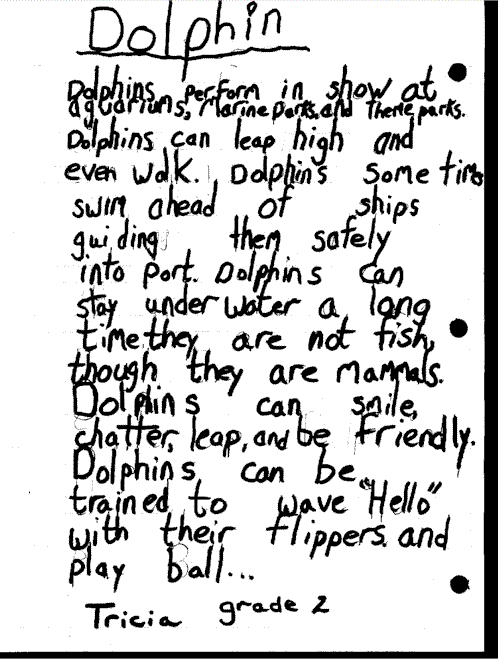 Dolphin
Dolphins perform in show at
aquariums, Marine parks, and Theme parks.
Dolphins can leap high and
even walk. Dolphins some time
swim ahead of ships
guiding them safely
into port. Dolphins can
stay under water a long
time they are not fish,
though they are mammals.
Dolphins can smile,
chatter, leap, and be friendly.
Dolphins can be
trained to wave "Hello"
with their flippers. and
play ball...
Tricia grade 2